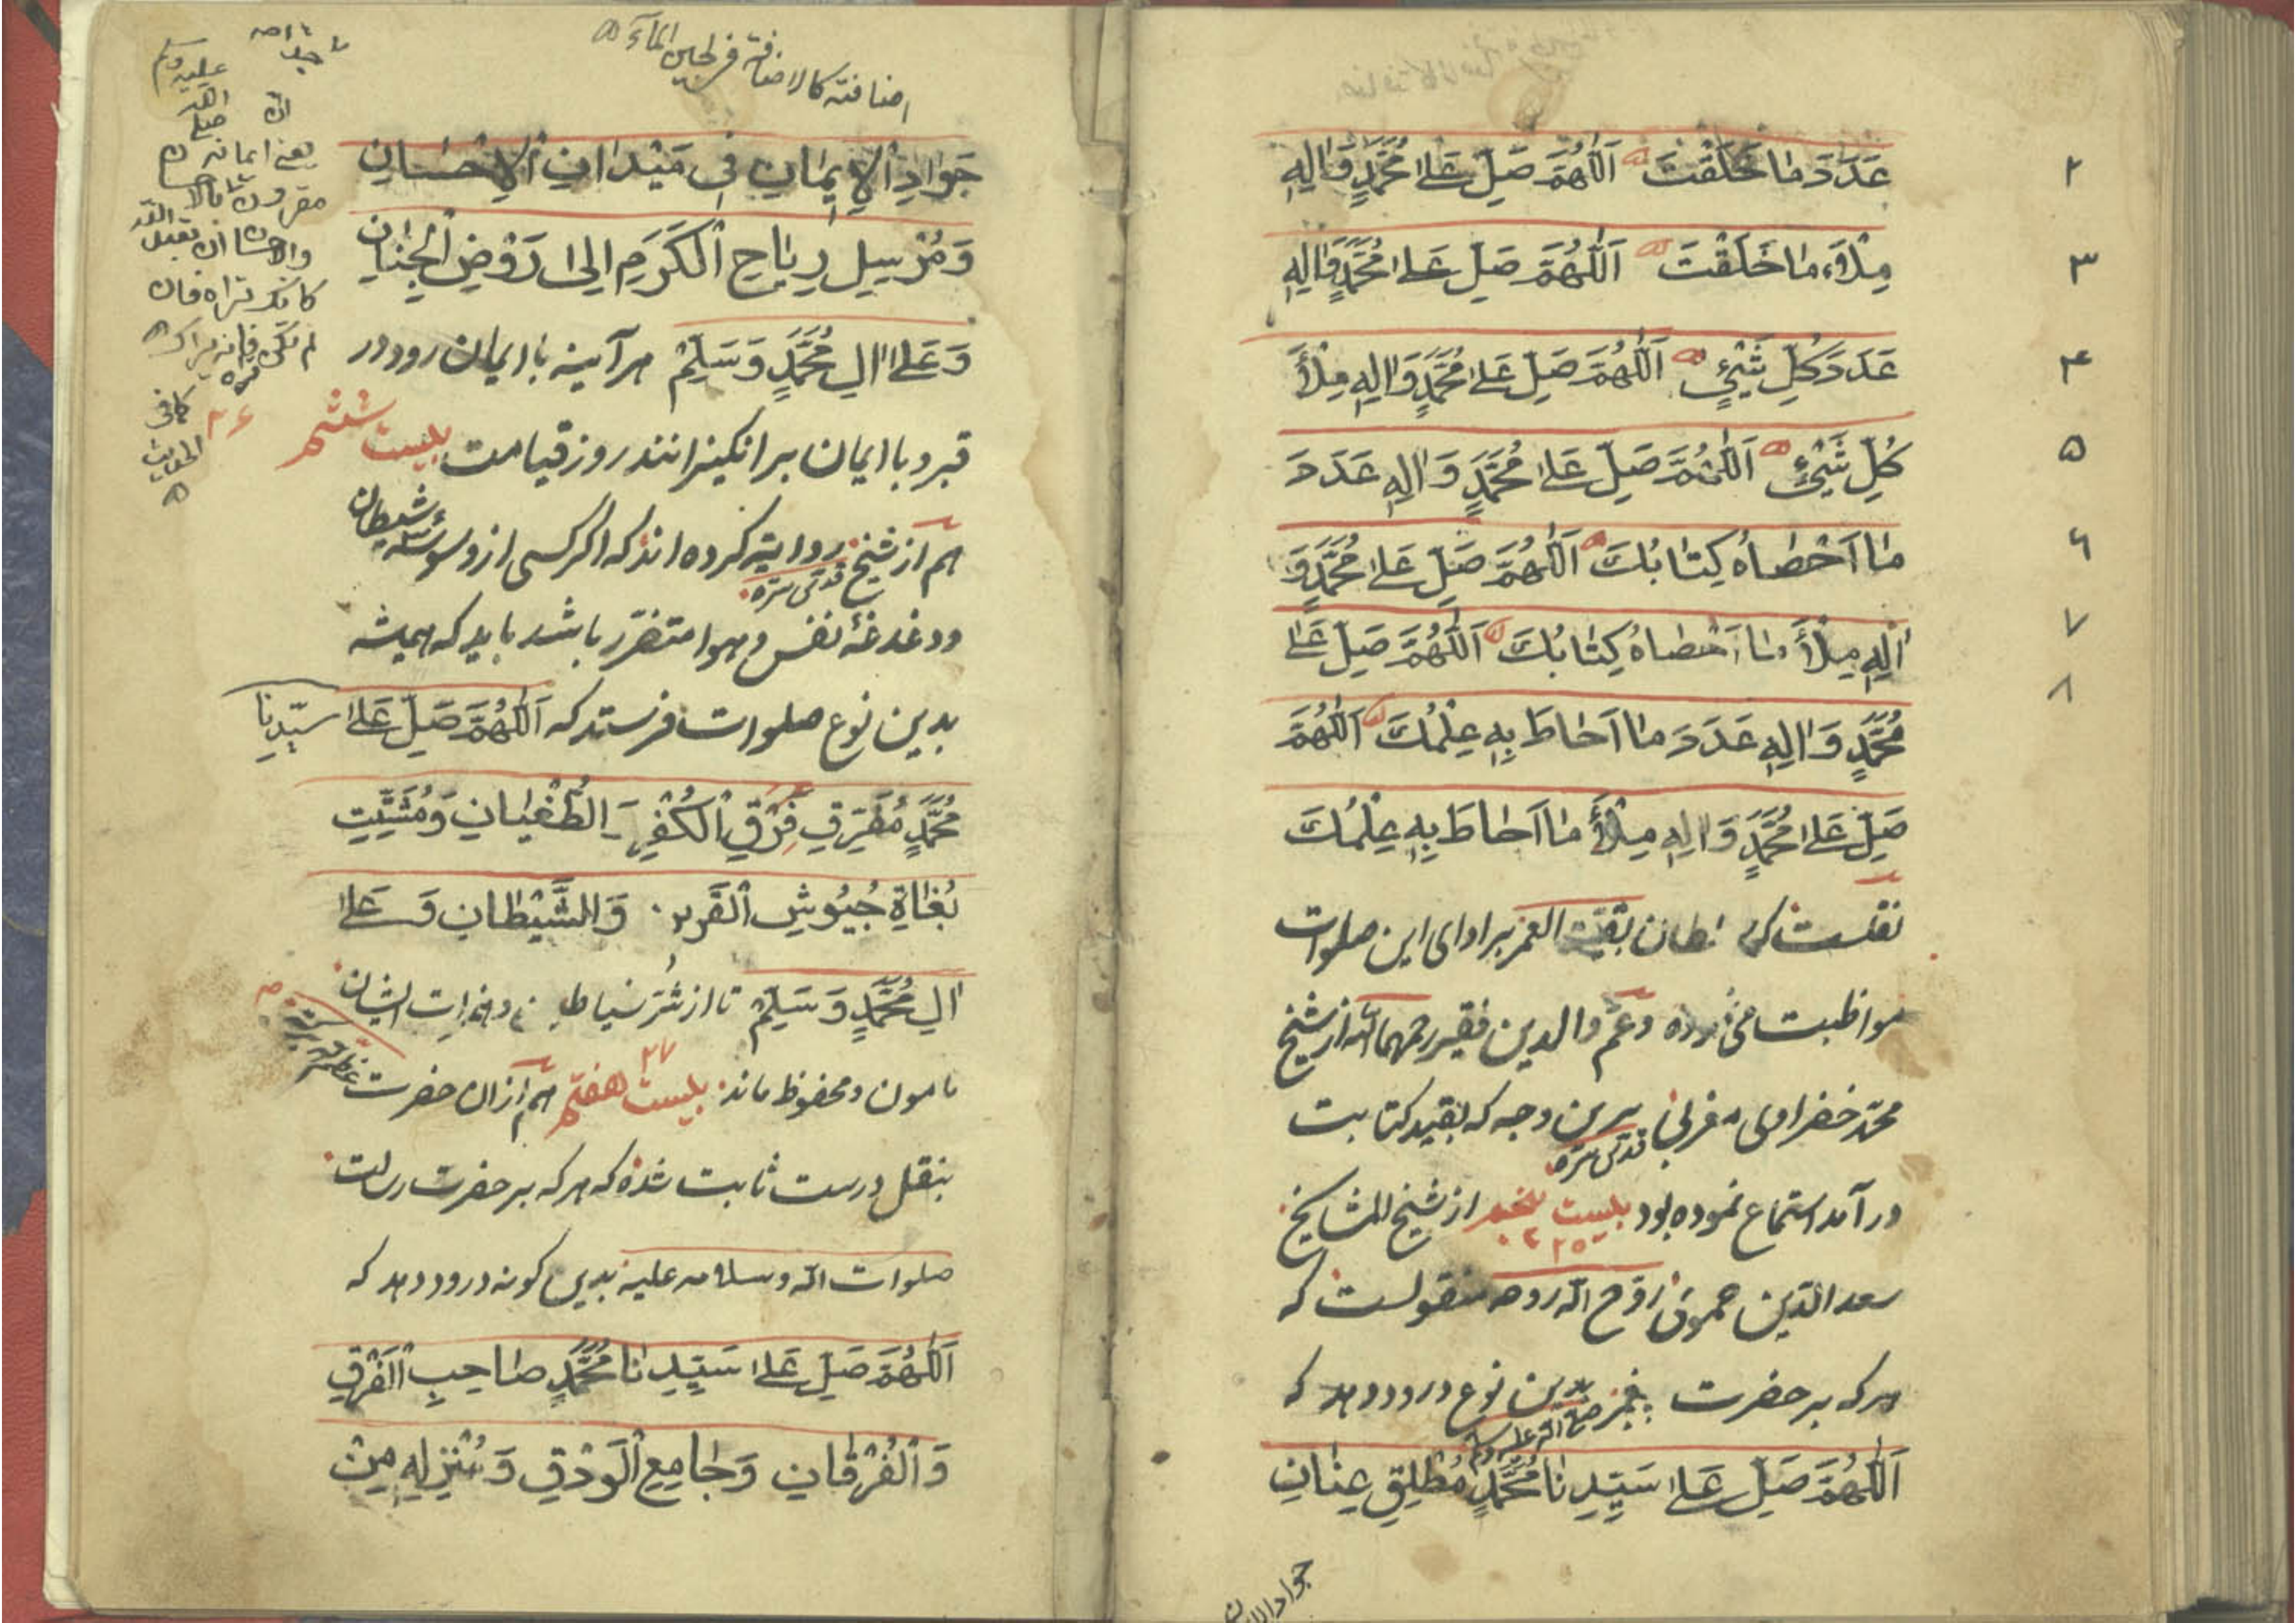 عَدَدَ مَا خَلَقْتَ اَللّٰهُمَّ صَلِّ عَلىٰ مُحَمَّدٍ وَاٰلِهِ
۲
مِلْاَءَ مٰا خَلَقْتَ اَللّٰهُمَّ صَلِّ عَلىٰ مُحَمَّدٍ وَاٰلِهِ
۳
عَدَدَ كُلِّ شَيْئٍ اَللّٰهُمَّ صَلِّ عَلىٰ مُحَمَّدٍ وَاٰلِهِ مِلْأَ
۴
كُلِّ شَيْئٍ اَللّٰهُمَّ صَلِّ عَلىٰ مُحَمَّدٍ وَاٰلِهِ عَدَدَ
۵
مٰا اَحْصٰاهُ كِتٰابُكَ اَللّٰهُمَّ صَلِّ عَلىٰ مُحَمَّدٍ وَ
۶
اٰلِهِ مِلْأَ مٰا اَحْصٰاهُ كِتٰابُكَ اَللّٰهُمَّ صَلِّ عَلىٰ
۷
مُحَمَّدٍ وَاٰلِهِ عَدَدَ مٰا اَحٰاطَ بِهِ عِلْمُكَ اَللّٰهُمَّ
۸
صَلِّ عَلىٰ مُحَمَّدٍ وَاٰلِهِ مِلْأَ مٰا اَحٰاطَ بِهِ عِلْمُكَ
نقلست كه بقيت العمر بر ادای اين صلوات
مواظبت می نموده و عم والدين فقير رحمهما الله از شيخ
محمد خضراوی مغربی قدس سره برين وجه كه بقيد كتابت
درآمد استماع نموده بود بيست پنجم ۲۵ از شيخ المشايخ
سعد الدين حموی روح الله روحه منقولست كه
هر كه بر حضرت پيغمبر صلى الله عليه وسلم بدين نوع درود دهد كه
اَللّٰهُمَّ صَلِّ عَلىٰ سَيِّدِنٰا مُحَمَّدٍ مُطْلِقِ عِنٰانِ
جواد الايمان
اضافته كالاضافة فی لجين المآء
جَوٰادِ الْاِيمٰانِ فِى مَيْدٰانِ الْاِحْسٰانِ
وَمُرْسِلِ رِيٰاحِ الْكَرَمِ اِلىٰ رَوْضِ الْجِنٰانِ
وَعَلىٰ اٰلِ مُحَمَّدٍ وَسَلِّمْ هر آينه با ايمان رود در
قبر و با ايمان بر انكيزانند روز قيامت بيست ششم
۲۶
هم از شيخ قدس سره روايت كرده اند كه اكر كسی از وسوسۀ شيطان
ودغدغۀ نفس و هوا متضرر باشد بايد كه هميشه
بدين نوع صلوات فرستد كه اَللّٰهُمَّ صَلِّ عَلىٰ سَيِّدِنٰا
مُحَمَّدٍ مُفَرِّقِ فِرَقِ الْكُفْرِ وَالطُّغْيٰانِ وَمُشَتِّتِ
بُغٰاةِ جُيُوشِ الْقَرِينِ وَالشَّيْطٰانِ وَعَلىٰ
اٰلِ مُحَمَّدٍ وَسَلِّمْ تا از شر شياطين وهمزات ايشان
مامون و محفوظ ماند بيست هفتم ۲۷ هم از ان حضرت
بنقل درست ثابت شده كه هر كه بر حضرت رسالت
صلوات الله وسلامه عليه بدين كونه درود دهد كه
اَللّٰهُمَّ صَلِّ عَلىٰ سَيِّدِنٰا مُحَمَّدٍ صٰاحِبِ الْفَرْقِ
وَالْفُرْقٰانِ وَجٰامِعِ الْوَرَقِ وَمُنْزِلِهِ مِنْ
يعنی ايمانه
مقرون بالاحسان
والاحسان ان تعبد الله
كانك تراه فان
لم تكن تراه فانه يراك
كما فی
الحديث